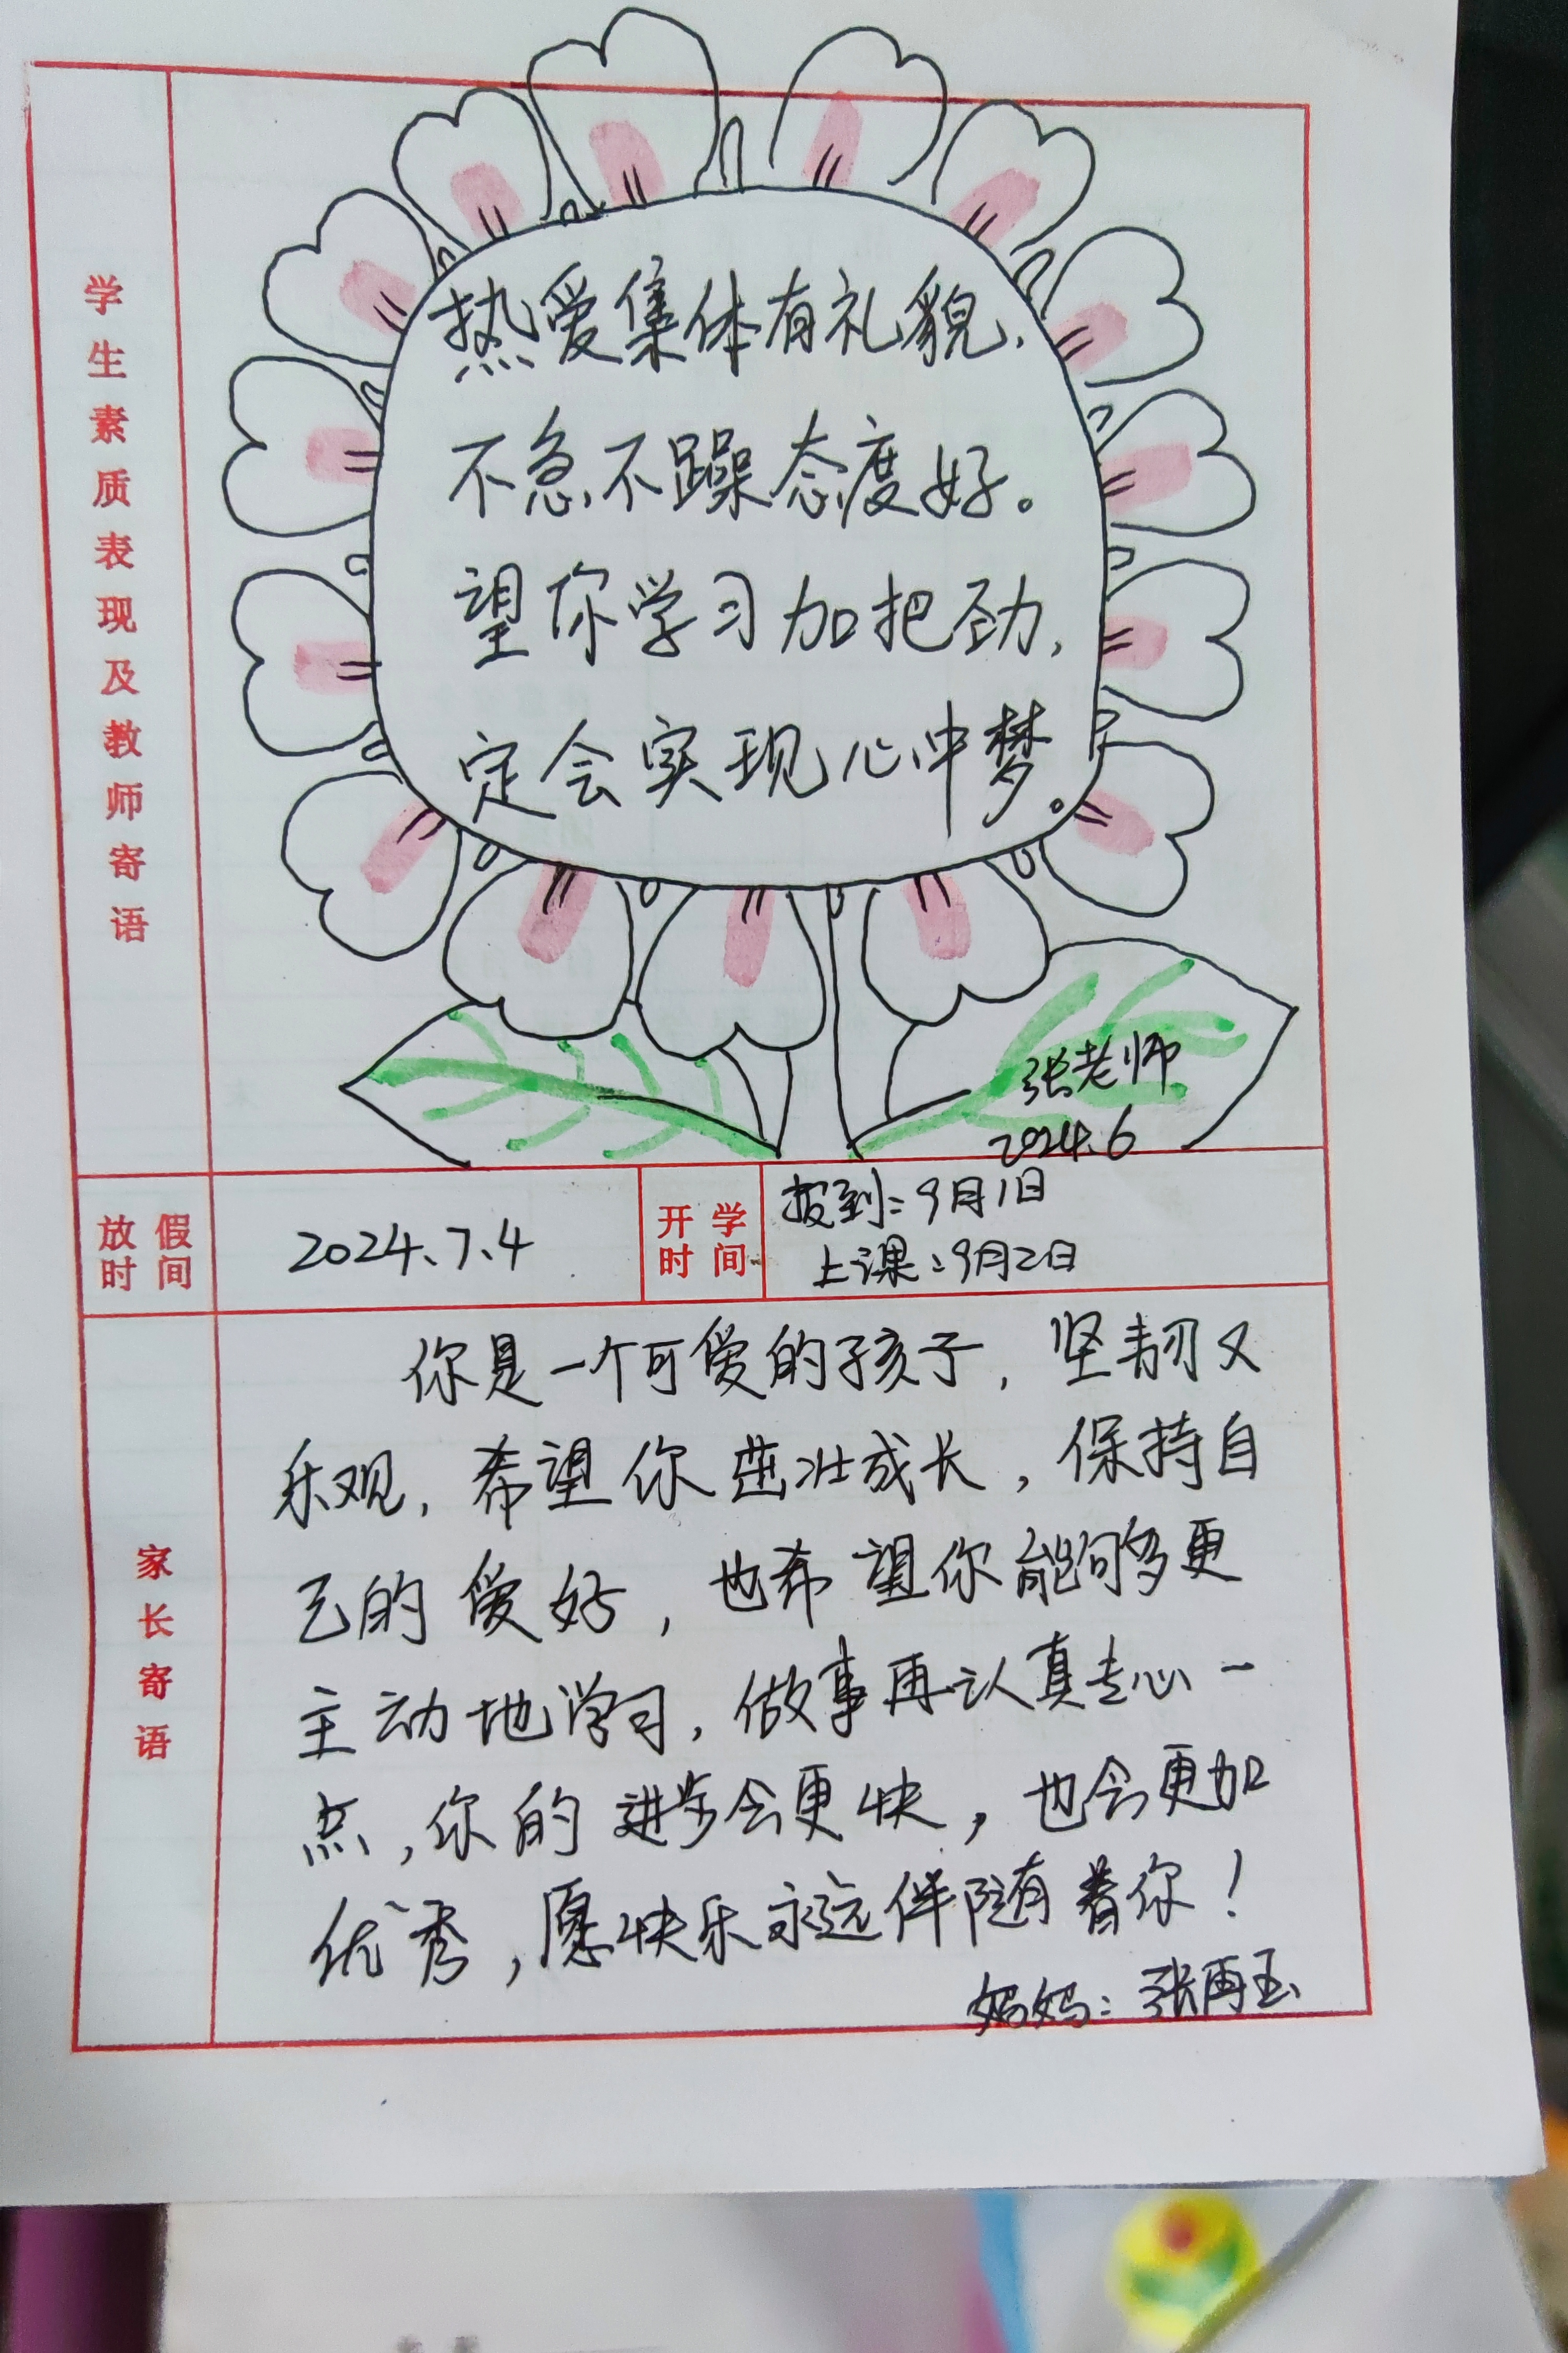 学生素质表现及教师寄语
热爱集体有礼貌,
不急不躁态度好。
望你学习加把劲,
定会实现心中梦。
张老师
2024.6
放假时间
2024.7.4
开学时间
报到:9月1日
上课:9月2日
家长寄语
你是一个可爱的孩子,坚韧又
乐观,希望你茁壮成长,保持自
己的爱好,也希望你能够更
主动地学习,做事再认真专心一
点,你的进步会更快,也会更加
优秀,愿快乐永远伴随着你!
妈妈:张再玉